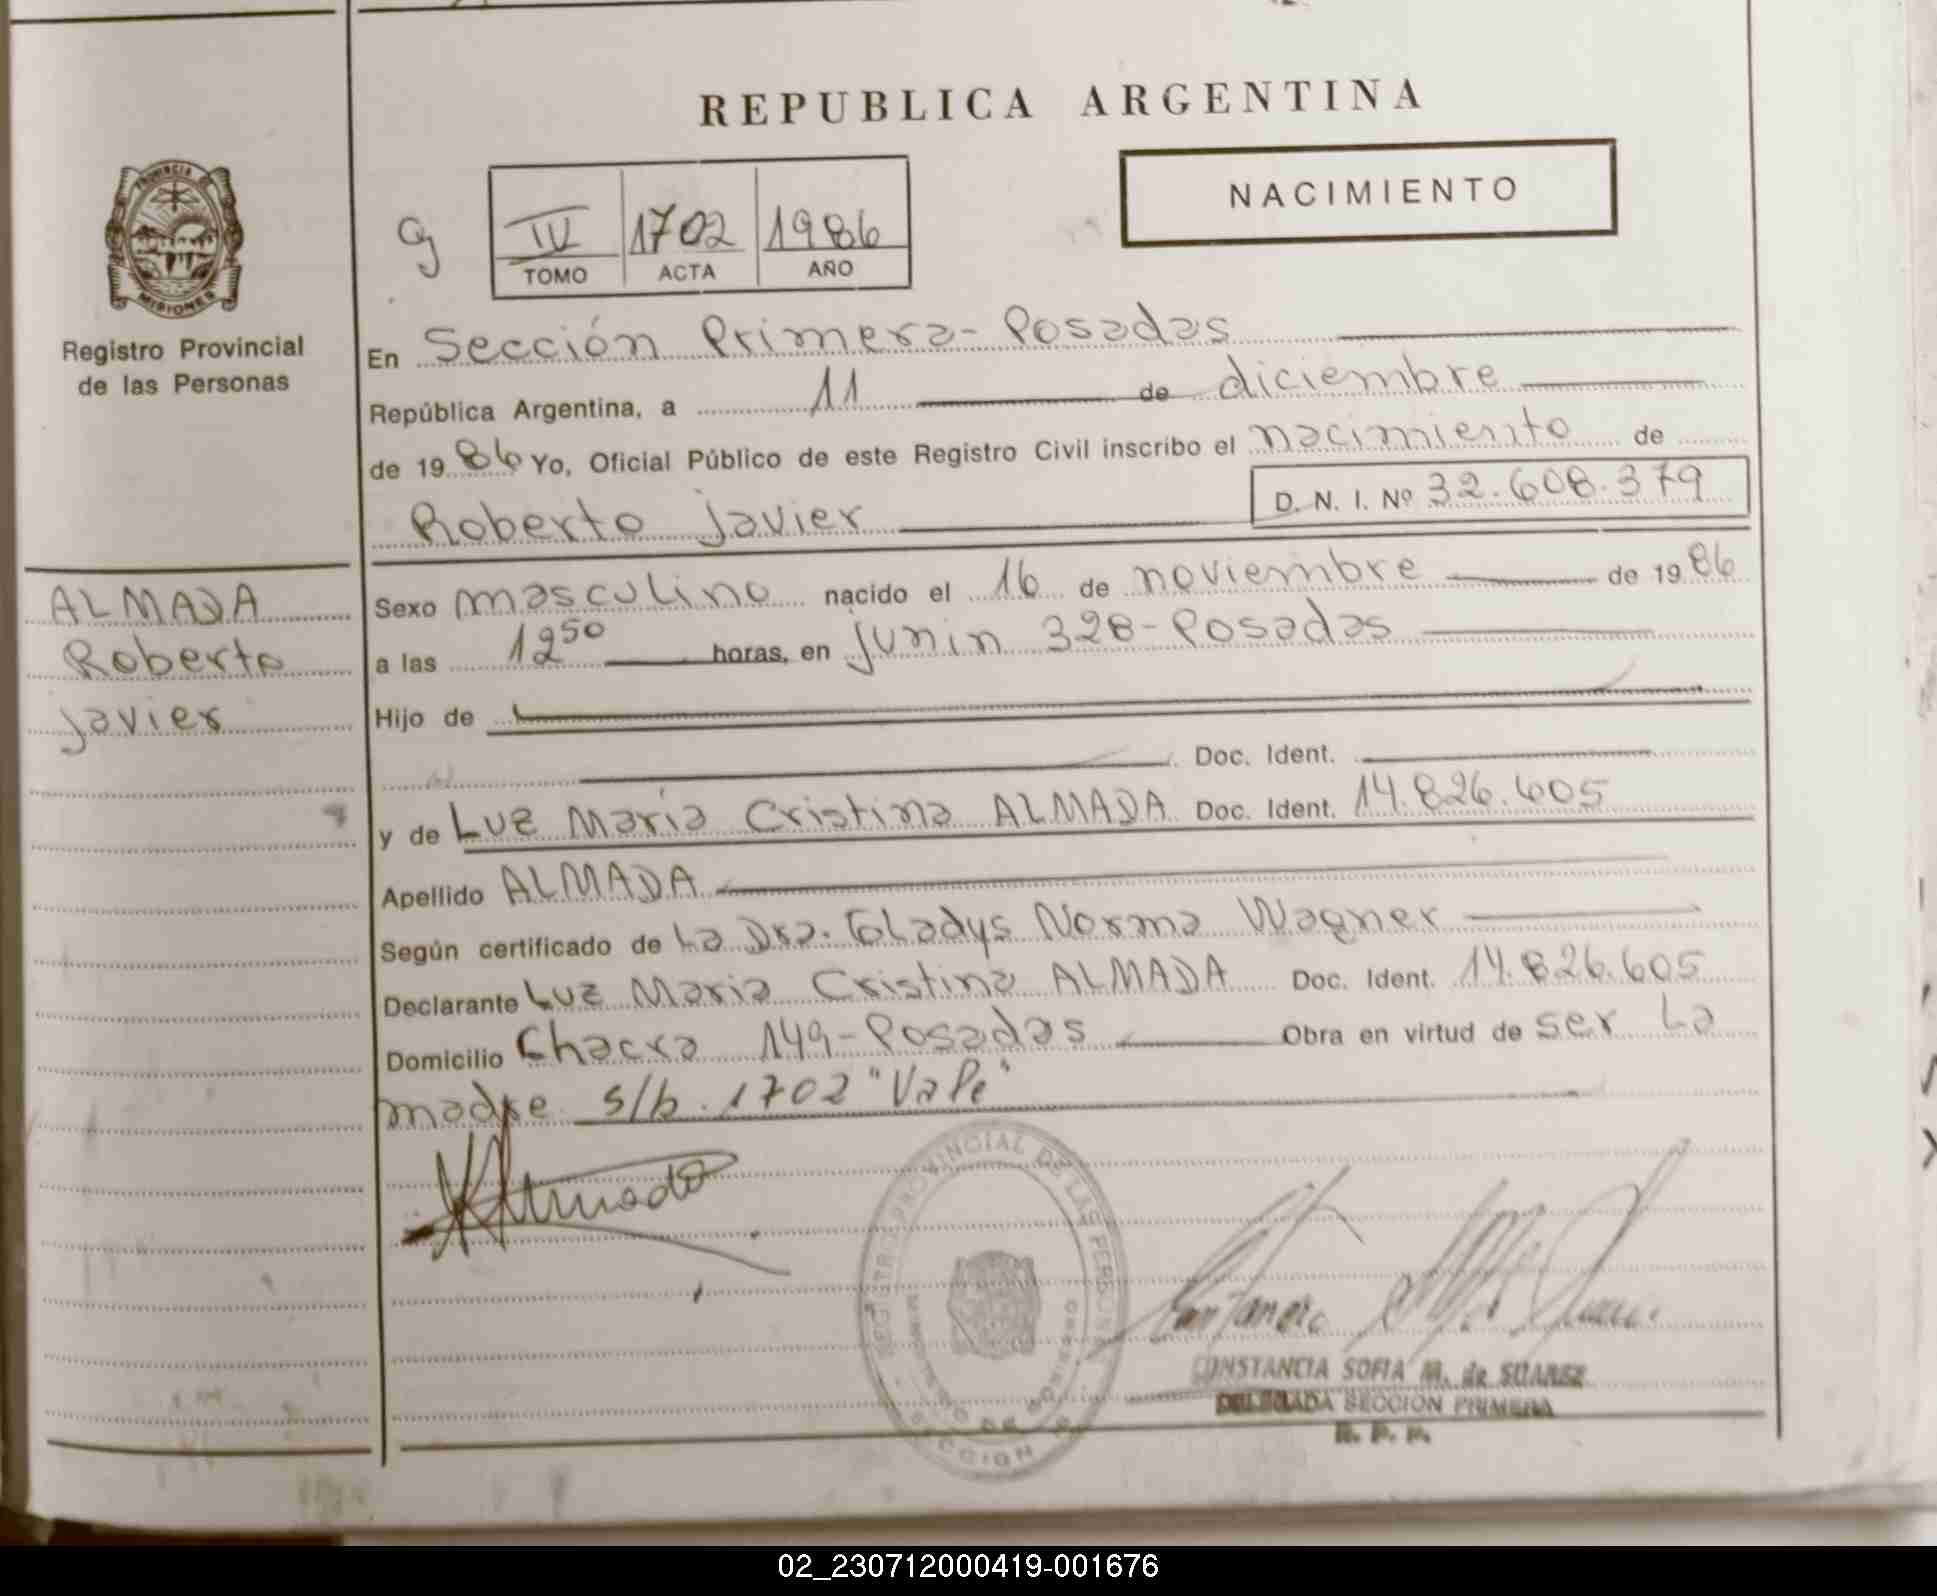 REPUBLICA ARGENTINA
NACIMIENTO
IV 1702 1986
TOMO ACTA AÑO
PROVINCIA DE
MISIONES
Registro Provincial
de las Personas
ALMADA
Roberto
Javier
En Sección Primera-Posadas
República Argentina, a 11 de diciembre
de 1986 Yo, Oficial Público de este Registro Civil inscribo el nacimiento de
Roberto Javier D. N. I. Nº 32.608.379
Sexo masculino nacido el 16 de noviembre de 1986
a las 12⁵⁰ horas, en Junin 328-Posadas
Hijo de
Doc. Ident.
y de Luz María Cristina ALMADA Doc. Ident. 14.826.605
Apellido ALMADA
Según certificado de La Dra. Gladys Norma Wagner
Declarante Luz Maria Cristina ALMADA Doc. Ident. 14.826.605
Domicilio Chacra 149-Posadas Obra en virtud de ser La
madre s/b. 1702 "Vale"
REGISTRO PROVINCIAL DE LAS PERSONAS
SECCION
CONSTANCIA SOFIA M. de SUAREZ
DELEGADA SECCION PRIMERA
R. P. P.
02_230712000419-001676